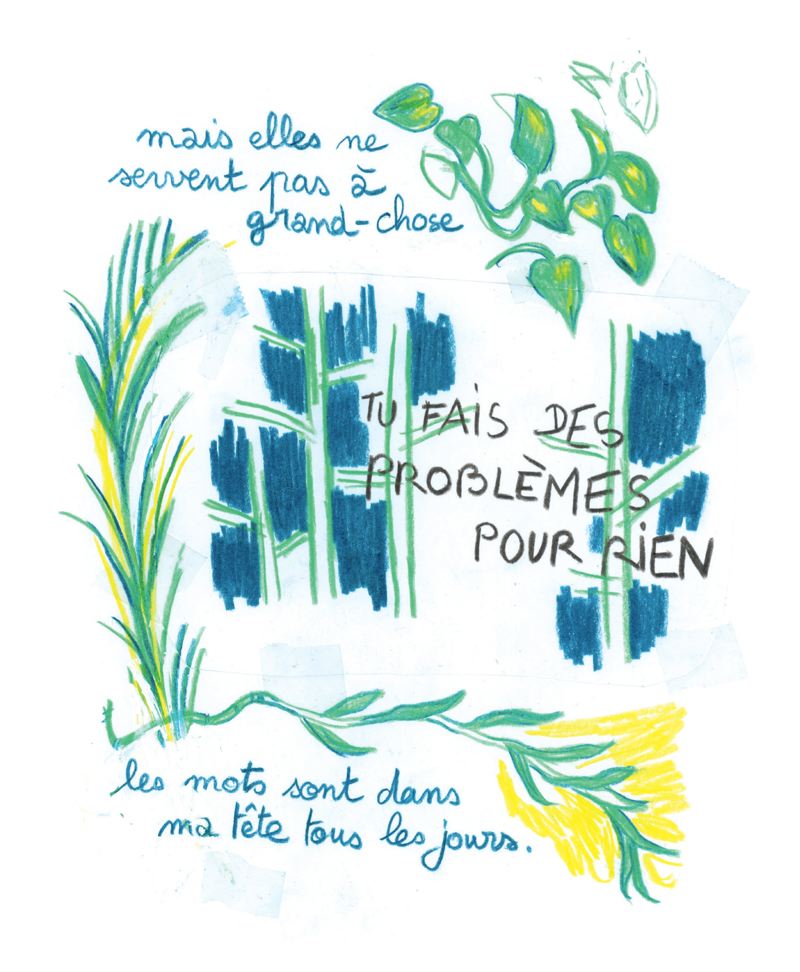 mais elles ne
servent pas à
grand-chose
TU FAIS DES
PROBLÈMES
POUR RIEN
les mots sont dans
ma tête tous les jours.